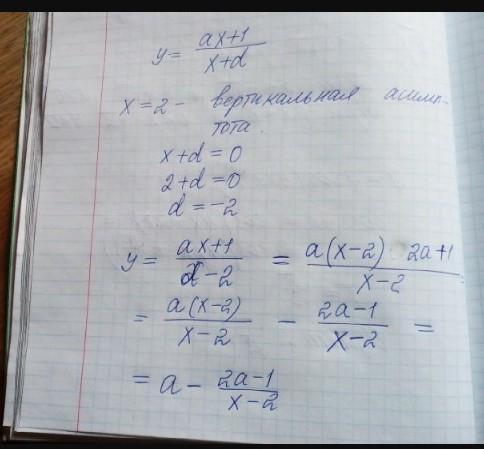 y = ax+1 / x+d
x = 2 - вертикальная асимп-
тота.
x+d = 0
2+d = 0
d = -2
y = ax+1 / x-2 = a(x-2) 2a+1 / x-2
= a(x-2) / x-2 - 2a-1 / x-2 =
= a - 2a-1 / x-2